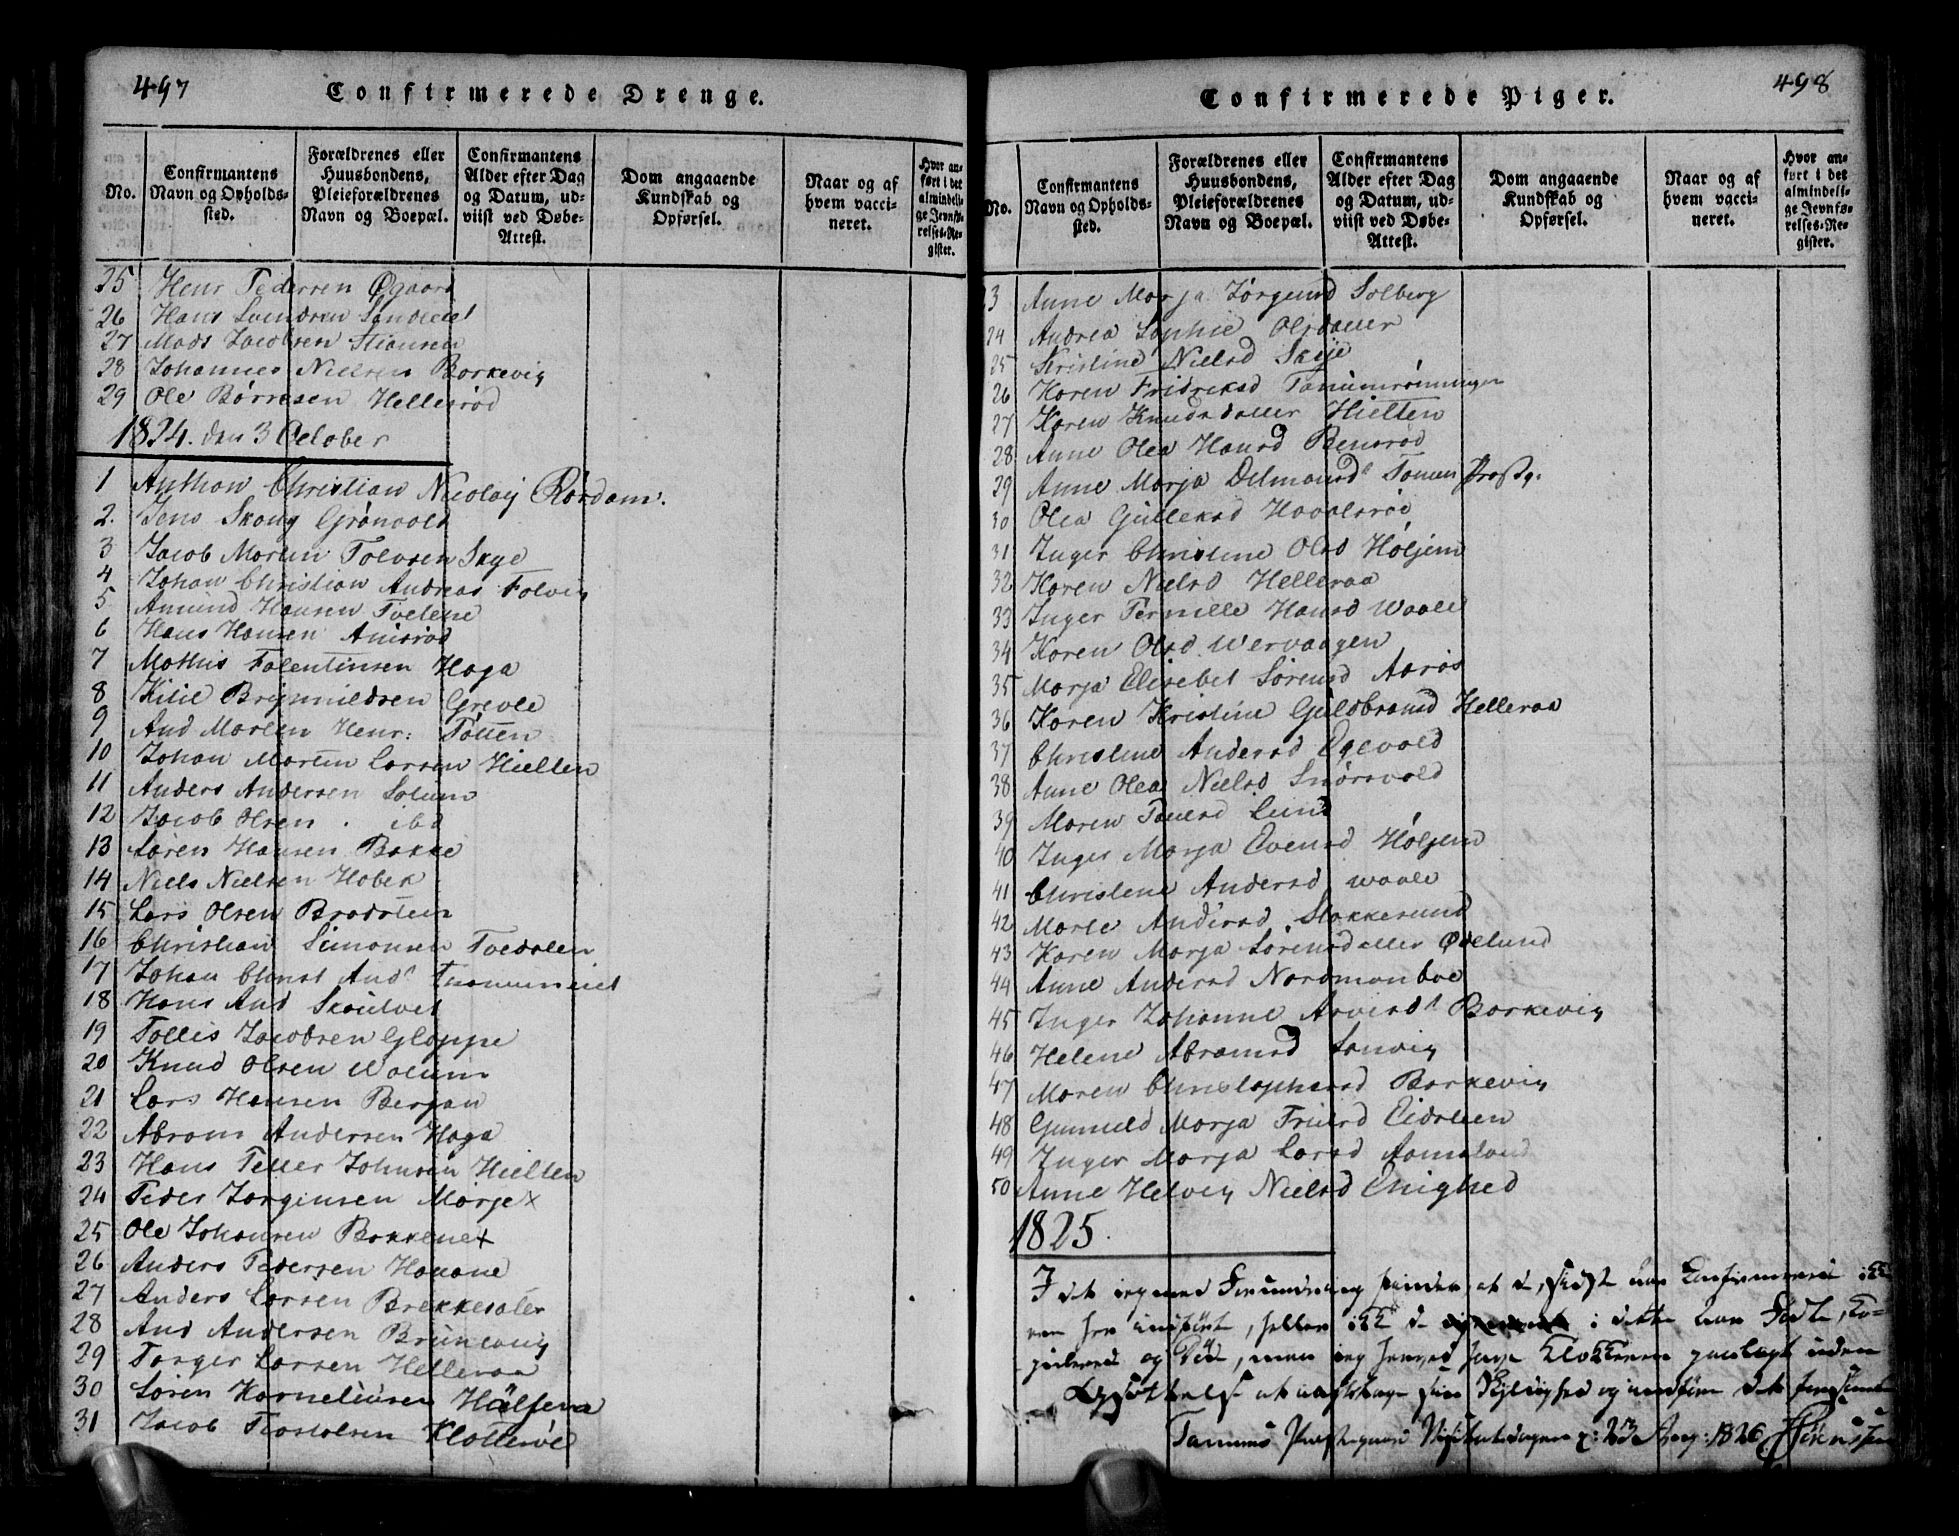 497
Confirmerede Drenge.
No.
Confirmantens Navn og Opholdssted.
Forældrenes eller Huusbondens, Pleieforældrenes Navn og Boepæl.
Confirmantens Alder efter Dag og Datum, udviist ved Døbe-Attest.
Dom angaaende Kundskab og Opførsel.
Naar og af hvem vaccineret.
Hvor anført i det almindelige Jevnførelses-Register.
25 Henr Pedersen Øgaard
26 Hans Svendsen
27 Mads Jacobsen
28 Johannes Nielsen Barkevig
29 Ole Børresen Hellesrød
1824. den 3 October
1 Anthon Christian Nicolay Rørdam.
2. Jens Skoug Grønvold
3 Jacob Martin Tolvsen Skye
4 Johan Christian Andreas Folvig
5 Amund Hansen Tvetene
6 Hans Hansen Amisrød
7 Mathis Falentinsen Haga
8 Kilie Brynnildsen Grevle
9 And Martin Henr:
10 Johan Martin Larsen Hielten
11 Anders Andersen Solum
12 Jacob Olsen . ibd
13 Søren Hansen Bakke
14 Niels Nielsen Hobek
15 Lars Olsen Bradsten
16 Christian Simonsen Tvedalen
17 Johan Christ And
18 Hans And
19 Tollis Jacobsen Gloppe
20 Knud Olsen
21 Lars Hansen Berjan
22 Abram Andersen Haga
23 Hans Petter Johnsen Hielten
24 Peder Jørgensen Marje x
25 Ole Johansen Bakkene x
26 Anders Pedersen Havane
27 Anders Larsen Brekkesater
28 And Andersen Brunevang
29 Torger Larsen Helleraa
30 Søren Karneliusen
31 Jacob Klatterød
498
Confirmerede Piger.
No.
Confirmantens Navn og Opholdssted.
Forældrenes eller Huusbondens, Pleieforældrenes Navn og Boepæl.
Confirmantens Alder efter Dag og Datum, udviist ved Døbe-Attest.
Dom angaaende Kundskab og Opførsel.
Naar og af hvem vaccineret.
Hvor anført i det almindelige Jevnførelses-Register.
23 Anne Marja Jørgensd Solberg
24 Andrea Sophie Olsdatter
25 Kristine Nielsd Skeje
26 Karen Fridreksd Tanumrønningen
27 Karen Knudsdatter Hielten
28 Anne Olea Hansd Bensrød
29 Anne Marja Tanum Prostg.
30 Olea Gulleksd Havalsrød
31 Inger Christine Olsd Høljem
32 Karen Nielsd Helleraa
33 Inger Pernille Hansd Waale
34 Karen Olsd Wervaagen
35 Marja Elisebet Sørensd Aarøs
36 Karen Kristine Guldbransd Helleraa
37 Christine Andersd Egevald
38 Anne Olea Nielsd Snørsvald
39 Maren Lund
40 Inger Marja Evensd Høljem
41 Christene Andersd Waale
42 Marte Andersd Stokkesund
43 Karen Marja Sørensdatter Ødelund
44 Anne Andersd Nordmandoe
45 Inger Johanne Arvesd Barkevig
46 Helene Abramsd Sanvig
47 Maren Christophersd Barkevig
48 Gunneld Marja Eidsteen
49 Inger Marja Larsd Aamaland
50 Anne Helvig Nielsd Enighed
1825.
I det jeg med finder at de sidst
her indført, heller ikke de i dette Aar Fødte, Co-
pulerede og Døde, men jeg herved Klokkeren uden
Opsættelse og indføre det
Tanums Præstegaard d: 23 Aug: 1826